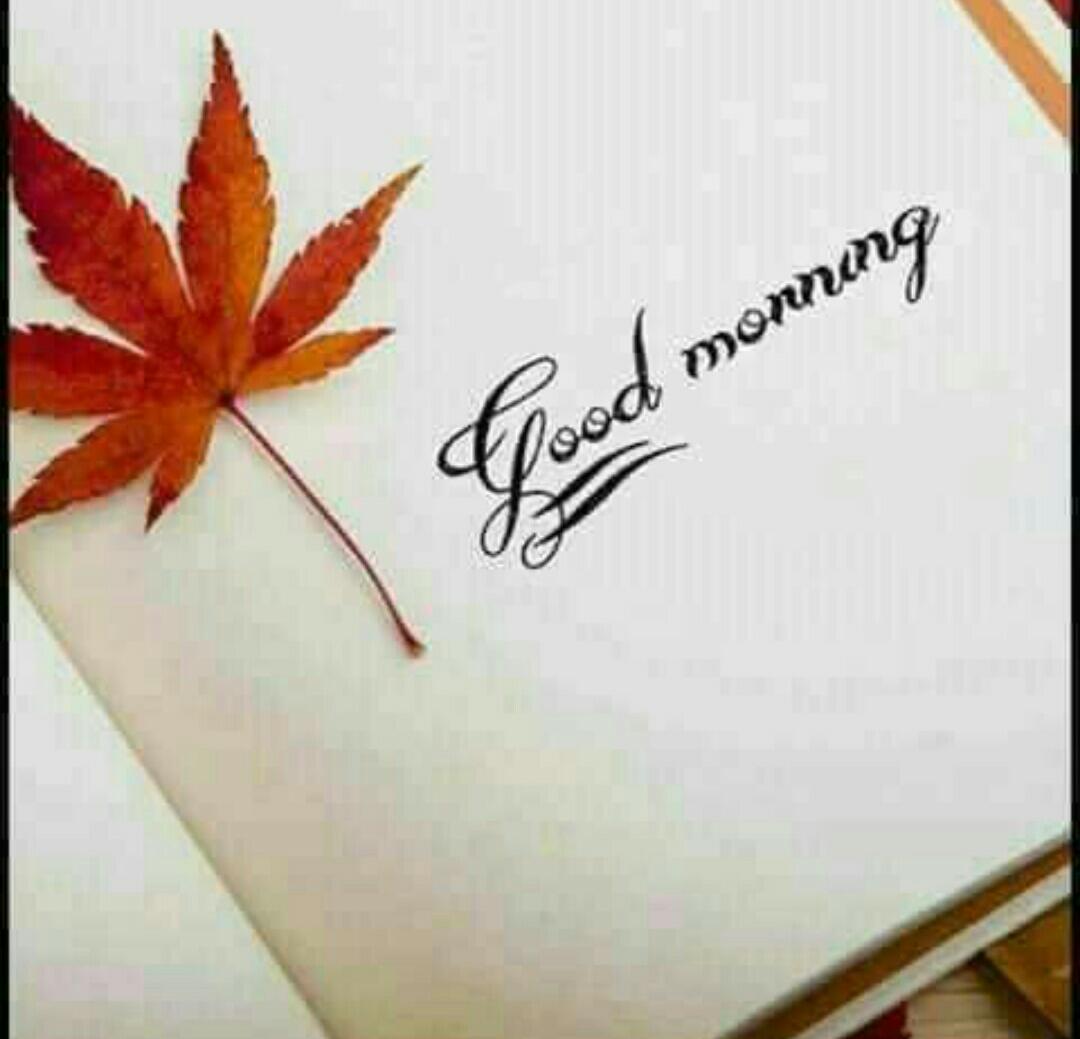 Good morning